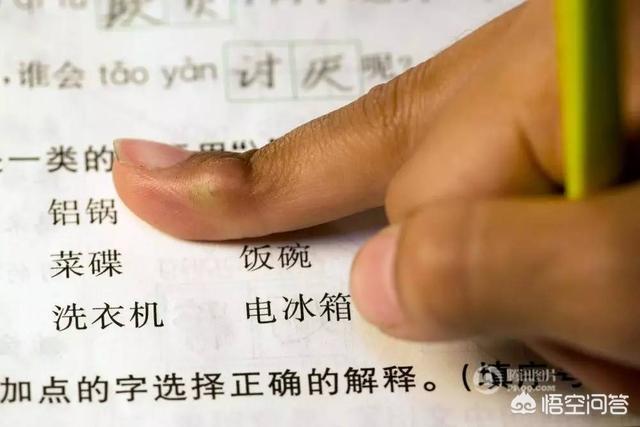 ，谁会 tǎo yàn 讨厌 呢？
一类的
铝锅
菜碟 饭碗
洗衣机 电冰箱
加点的字选择正确的解释。(填序号
腾讯图片
悟空问答